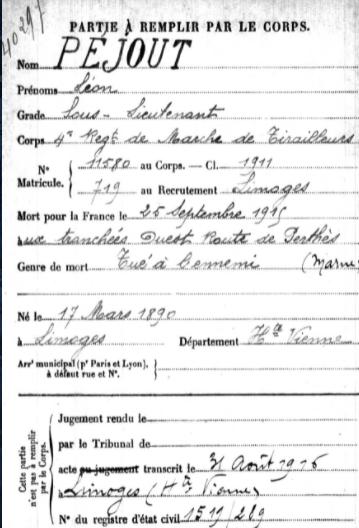 40297
PARTIE À REMPLIR PAR LE CORPS.
Nom PÉJOUT
Prénoms Léon
Grade Sous-Lieutenant
Corps 4e Regt de Marche de Tirailleurs
N° Matricule. 11580 au Corps. — Cl. 1911
719 au Recrutement Limoges
Mort pour la France le 25 Septembre 1915
aux tranchées Ouest Route de Perthes
(Marne)
Genre de mort Tué à l'ennemi
Né le 17 Mars 1890
à Limoges Département Hte Vienne
Arrt municipal (pr Paris et Lyon), à défaut rue et N°.
Cette partie n'est pas à remplir par le Corps.
Jugement rendu le
par le Tribunal de
acte ou jugement transcrit le 31 Août 1916
à Limoges (Hte Vienne)
N° du registre d'état civil 1519/289